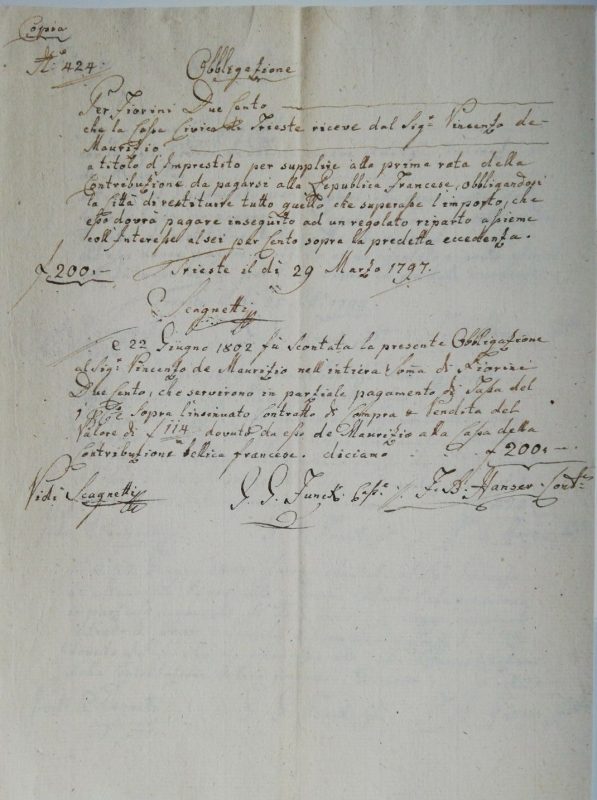 Copia
N.º 424.
Obbligazione
Per Fiorini Due Cento
che la Cassa Civica di Trieste riceve dal Sigr. Vincenzo de
Maurizio
a titolo d'Imprestito per supplire alla prima rata della
Contribuzione da pagarsi alla Republica Francese, obbligandosi
la Città di restituire tutto quello che superasse l'importo, che
esso dovrà pagare inseguito ad un regolato riparto assieme
coll'Interesse al sei per cento sopra la predetta eccedenza.
f 200:— Trieste il di 29 Marzo 1797.
Scagnetti
22 Giugno 1802 fù scontata la presente Obbligazione
al Sigr. Vincenzo de Maurizio nell'intiera Soma di Fiorini
Due Cento, che servirono in partiale pagamento di Tassa del
sopra l'insinuato Contratto di Compra e Vendita del
Valore di f 114 dovuto da esso de Maurizio alla Cassa della
Contribuzione bellica francese. diciamo f 200:—
Vidi Scagnetti J. J. Funck J. B. Hanser